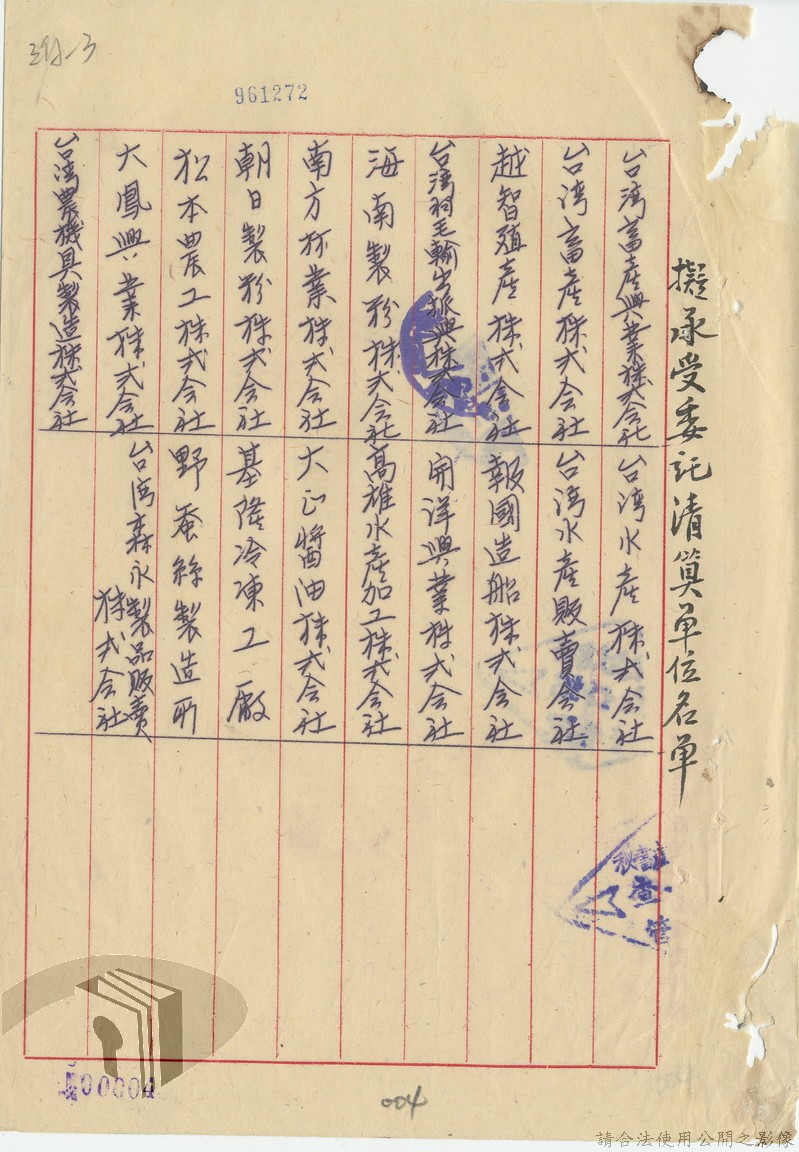 961272
擬承受委託清算單位名单
台湾畜產興業株式会社
台湾畜產株式会社
越智殖產株式会社
台湾羽毛輸出振興株式会社
海南製粉株式会社
南方林業株式会社
朝日製粉株式会社
松本農工株式会社
大鳳興業株式会社
台湾農機具製造株式会社
台湾水產株式会社
台湾水產販賣会社
報國造船株式会社
開洋興業株式会社
高雄水產加工株式会社
大正醬油株式会社
基隆冷凍工廠
野蚕絲製造所
台湾森永製品販賣
株式会社
00004
004
請合法使用公開之影像